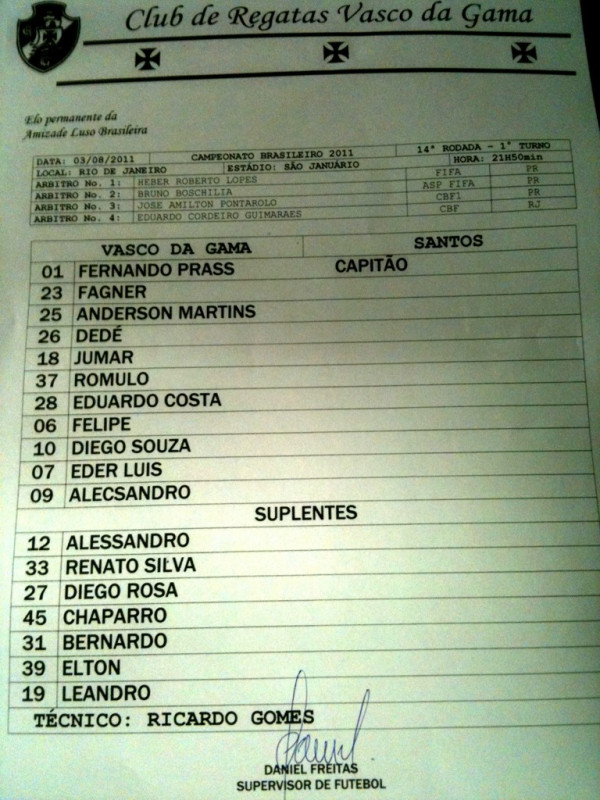 Club de Regatas Vasco da Gama
Elo permanente da
Amizade Luso Brasileira
DATA: 03/08/2011 CAMPEONATO BRASILEIRO 2011 14ª RODADA - 1º TURNO
LOCAL: RIO DE JANEIRO ESTÁDIO: SÃO JANUÁRIO HORA: 21H50min
ARBITRO No. 1: HEBER ROBERTO LOPES FIFA PR
ARBITRO No. 2: BRUNO BOSCHILIA ASP FIFA PR
ARBITRO No. 3: JOSE AMILTON PONTAROLO CBF1 PR
ARBITRO No. 4: EDUARDO CORDEIRO GUIMARAES CBF RJ
VASCO DA GAMA SANTOS
01 FERNANDO PRASS CAPITÃO
23 FAGNER
25 ANDERSON MARTINS
26 DEDÉ
18 JUMAR
37 ROMULO
28 EDUARDO COSTA
06 FELIPE
10 DIEGO SOUZA
07 EDER LUIS
09 ALECSANDRO
SUPLENTES
12 ALESSANDRO
33 RENATO SILVA
27 DIEGO ROSA
45 CHAPARRO
31 BERNARDO
39 ELTON
19 LEANDRO
TÉCNICO: RICARDO GOMES
DANIEL FREITAS
SUPERVISOR DE FUTEBOL